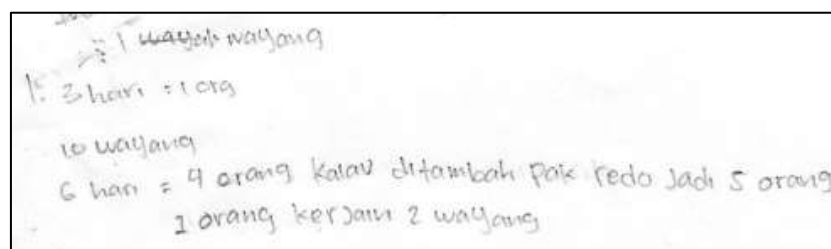 : 1 wayang
1. 3 hari = 1 org
10 wayang
6 hari = 4 orang kalau ditambah pak redo jadi 5 orang
1 orang kerjain 2 wayang